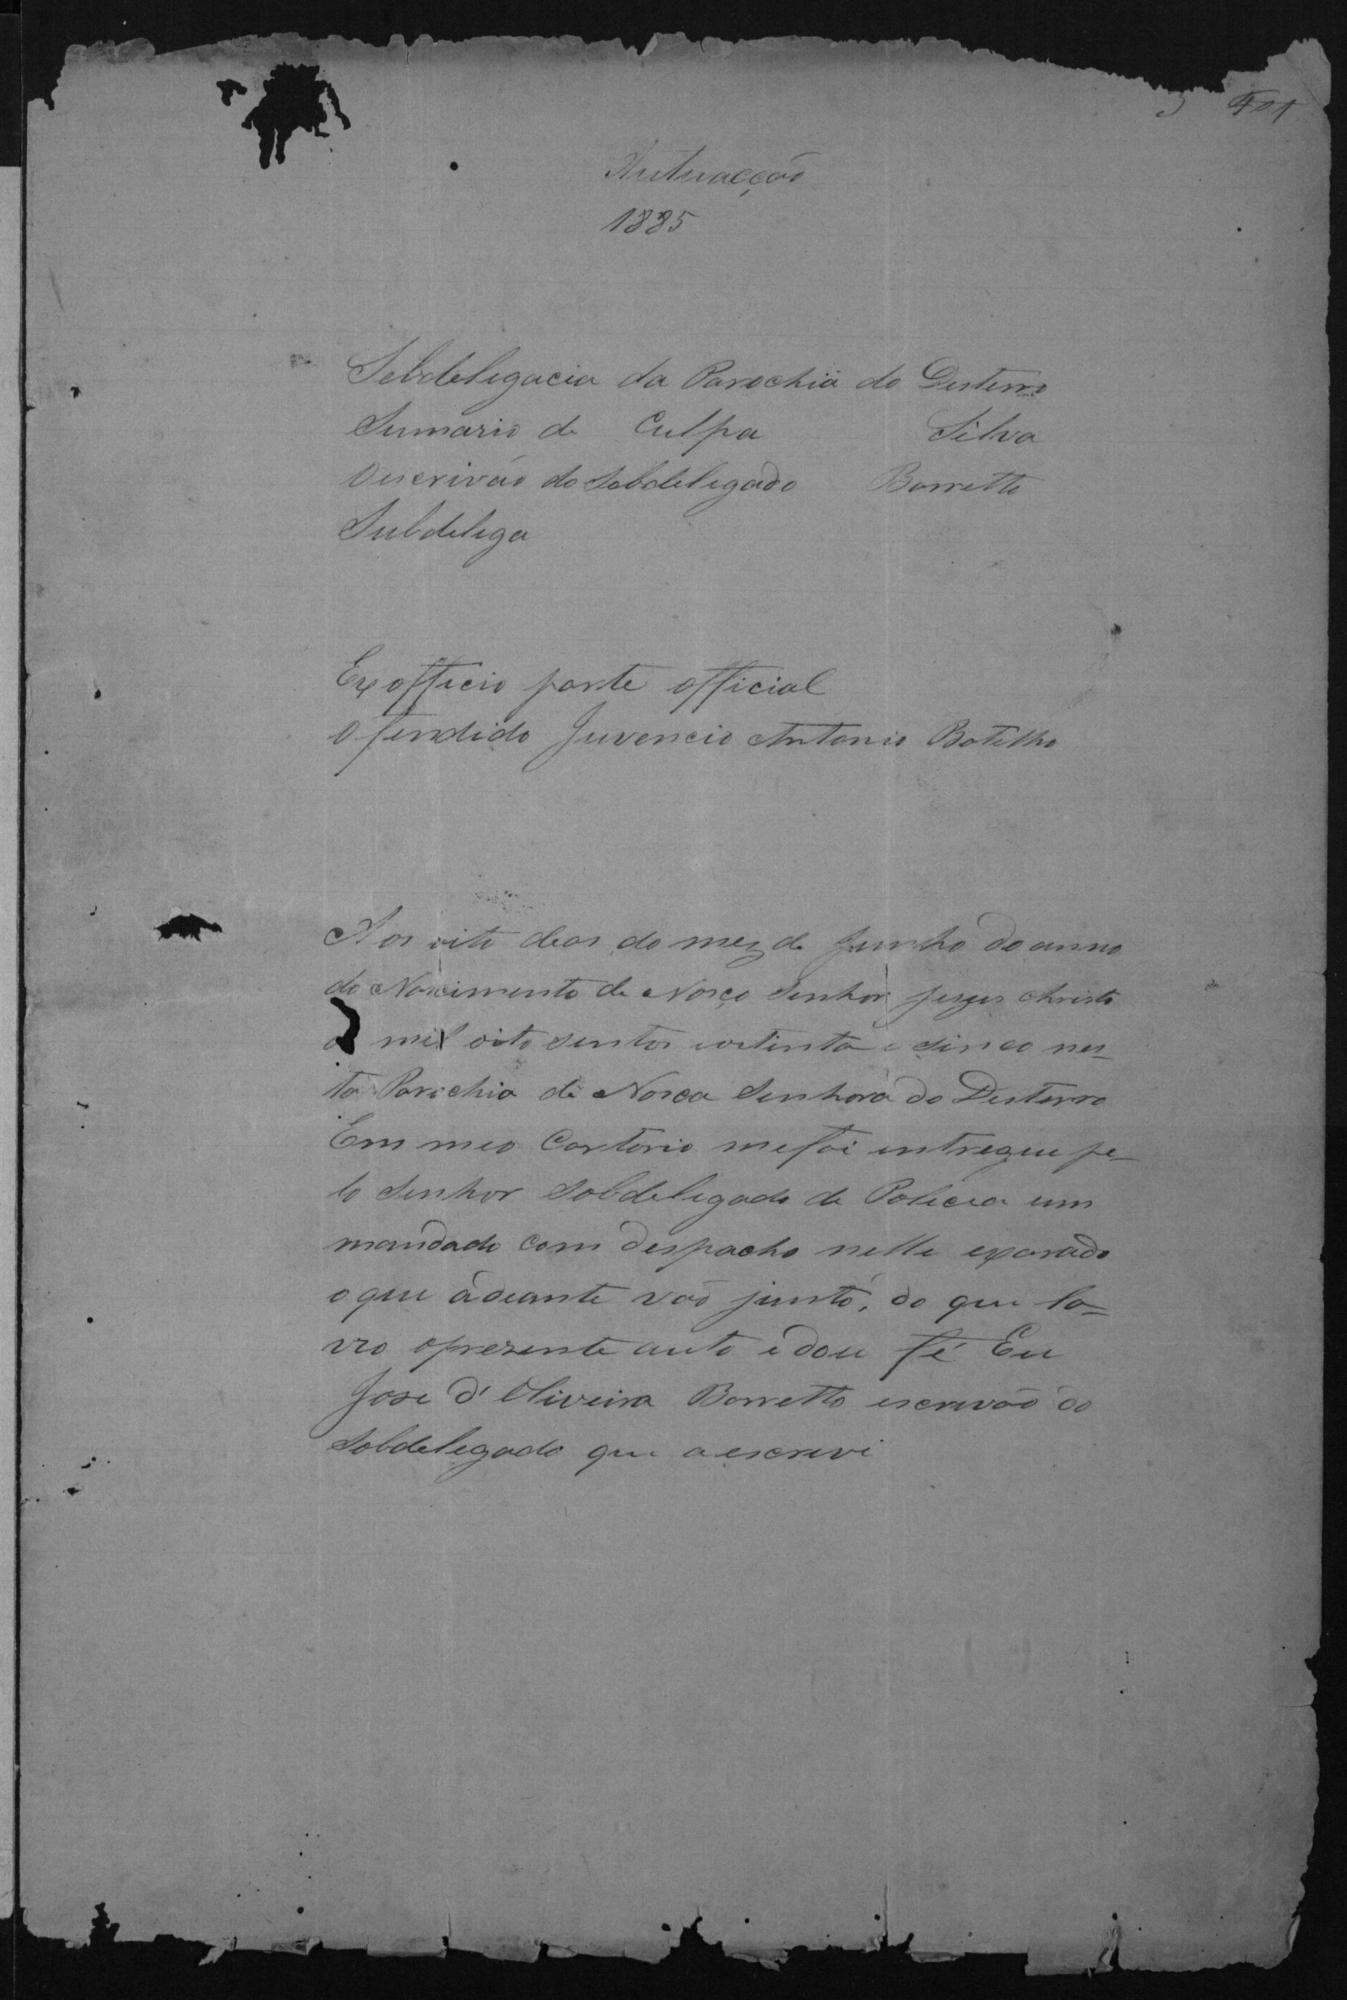 401
Autuacção
1885
Sebdelegacia da Parochia do Desterro
Sumario de Culpa Silva
Oescrivão do Sobdelegado Barretto
Subdelega
Exofficio parte official
Ofendido Juvencio Antonio Botelho
Aos oito deas do mez de Junho do anno
do Nascimento de Nosço Senhor Jezus Christo
mil oito sentos eoitenta e sinco nes-
ta Parochia de Nosça Senhora do Desterro
Em meo Cartorio mefoi entregue pe-
lo Senhor Sobdelegado de Policia um
mandado com despacho nelle exarado
oque ádeante vaõ junto, do que la-
vro oprezente auto edou fé Eu
Jose d'Oliveira Barretto escrivaõ do
Sobdelegado que aescrevi